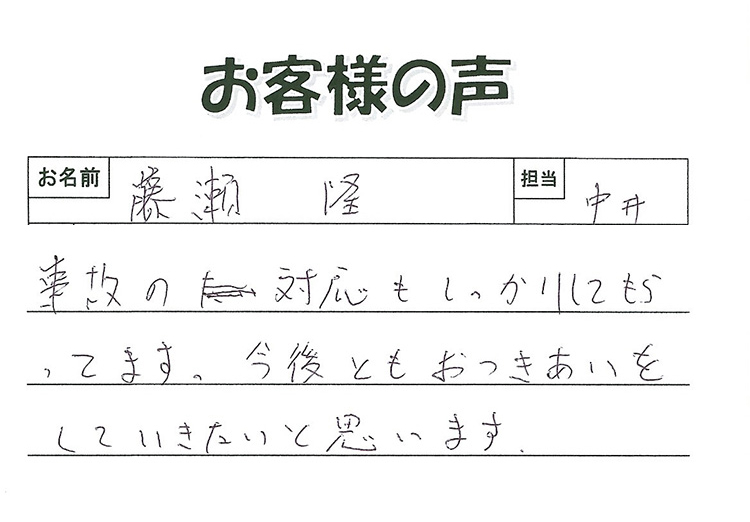 お客様の声
お名前 藤瀬 隆 担当 中井
事故の 対応もしっかりしてもら
ってます。今後ともおつきあいを
していきたいと思います。